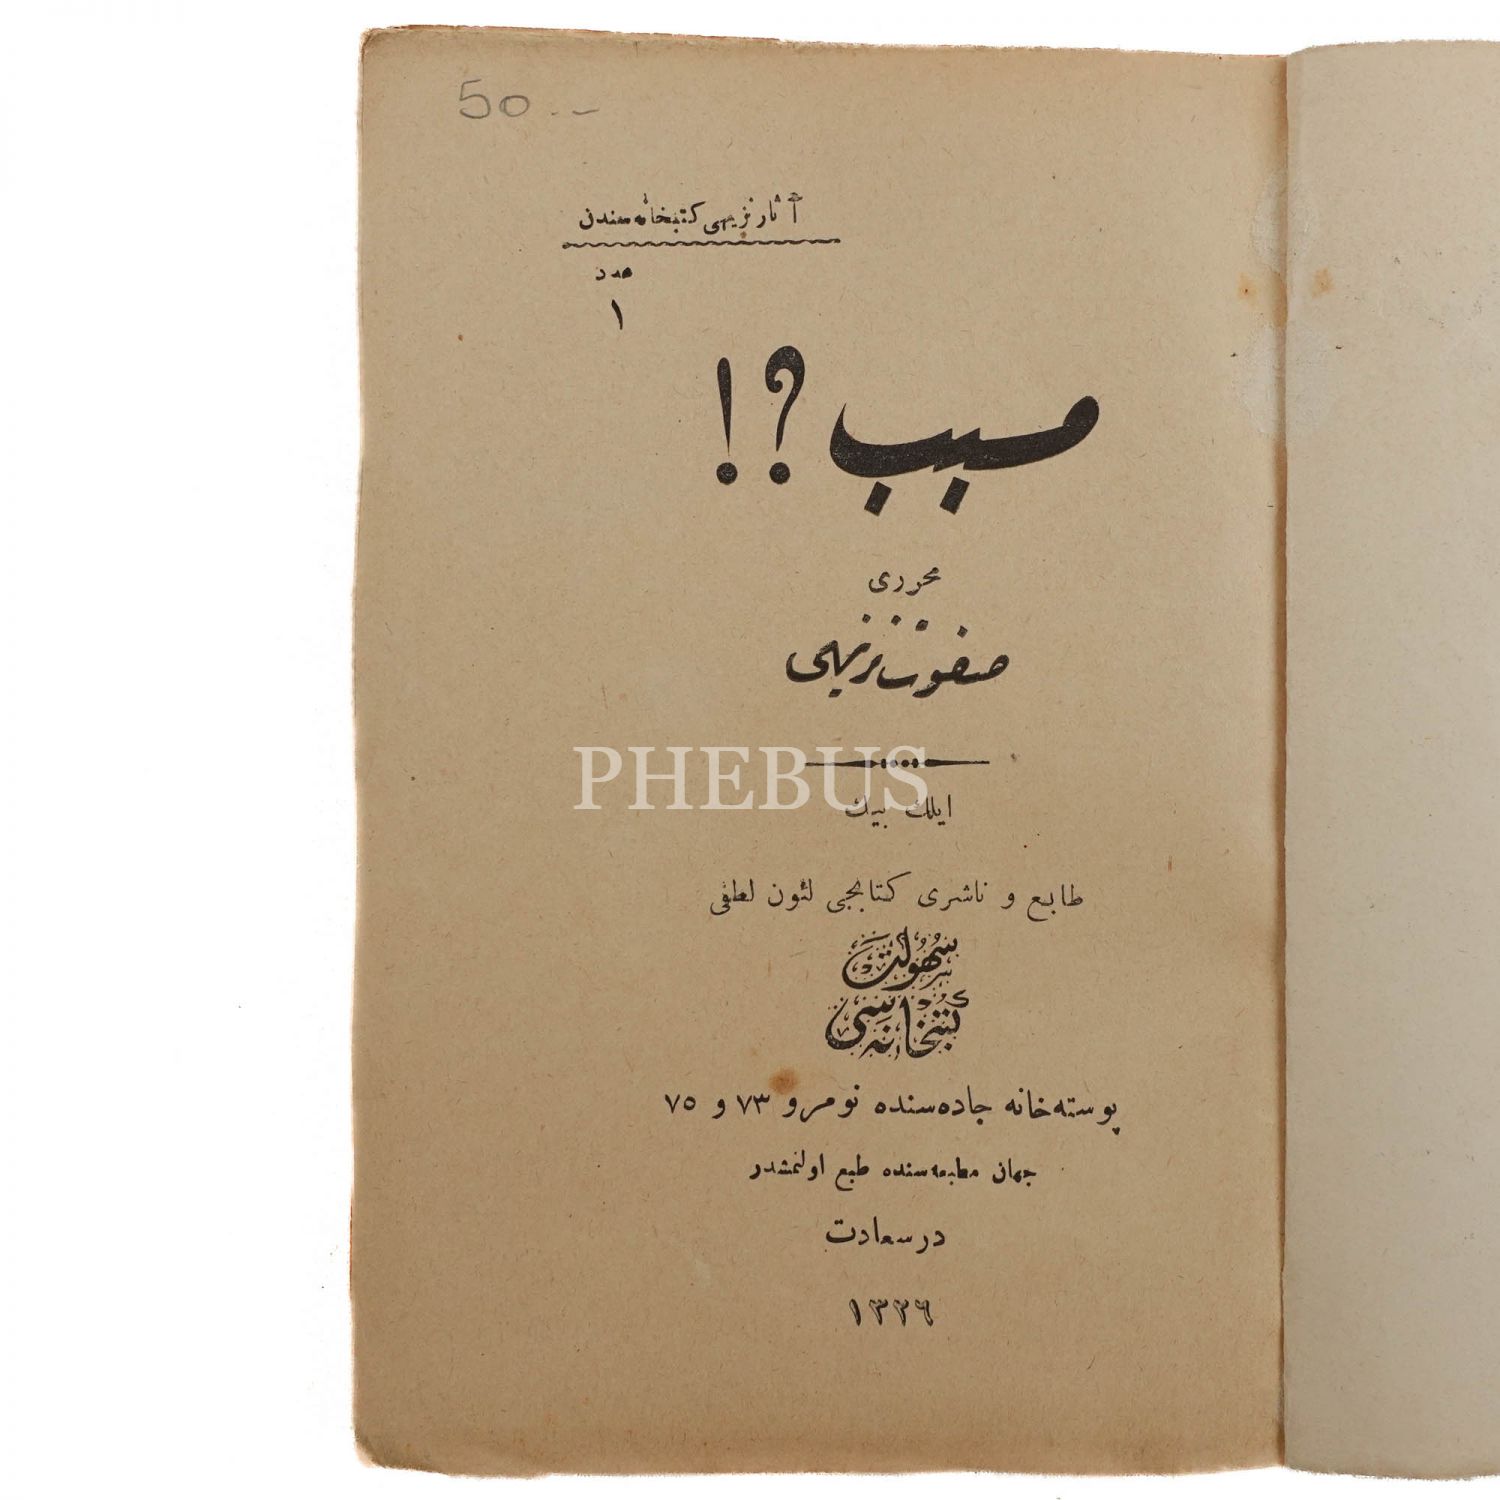 50.-
آثار نزيهی كتبخانه‌سندن
عدد
١
سبب ؟!
محرری
صفوت نزيهی
PHEBUS
ايلك بيك
طابع و ناشری كتابجی لئون لطفی
سهولت
كتبخانه‌سی
پوسته‌خانه جاده‌سنده نومرو ٧٣ و ٧٥
جهان مطبعه‌سنده طبع اولنمشدر
درسعادت
١٣٢٦